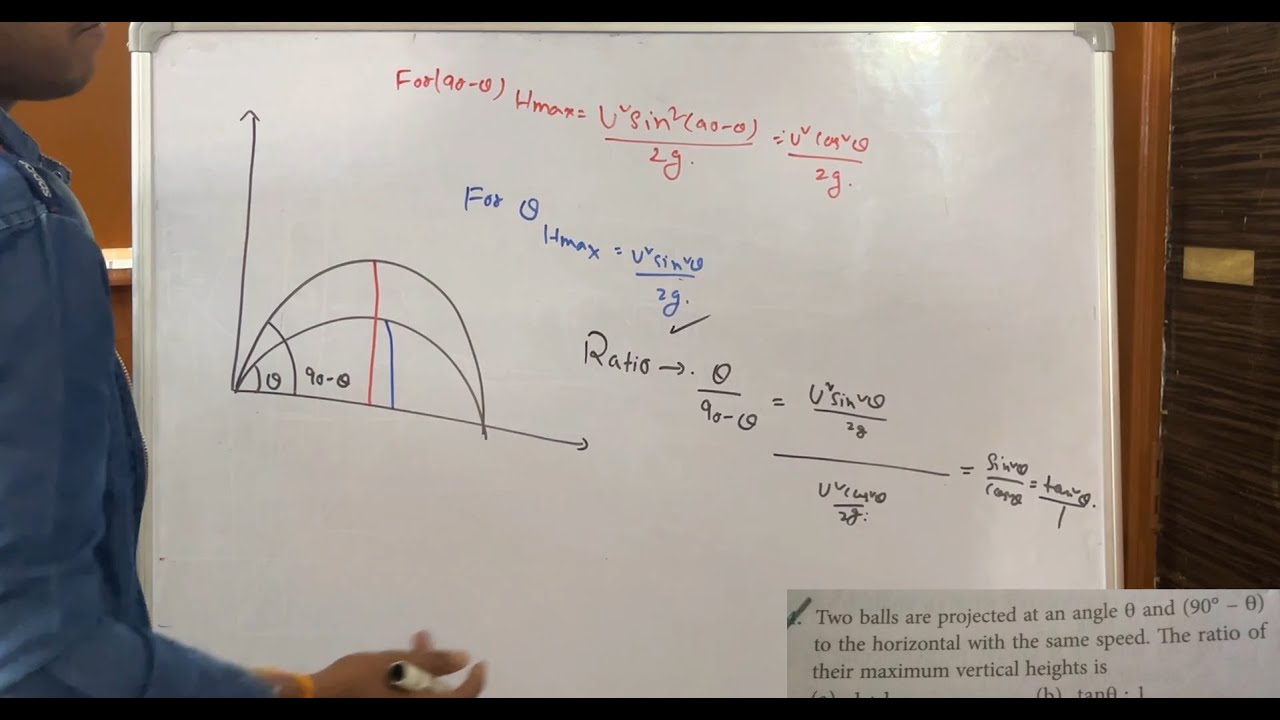 For(90-θ) Hmax = U²sin²(90-θ) / 2g. = U²cos²θ / 2g.
For θ
Hmax = U²sin²θ / 2g.
Ratio → θ / 90-θ = U²sin²θ / 2g / U²cos²θ / 2g = sin²θ / cos²θ = tan²θ. / 1
θ 90-θ
Two balls are projected at an angle θ and (90° – θ)
to the horizontal with the same speed. The ratio of
their maximum vertical heights is
(b) tanθ : 1